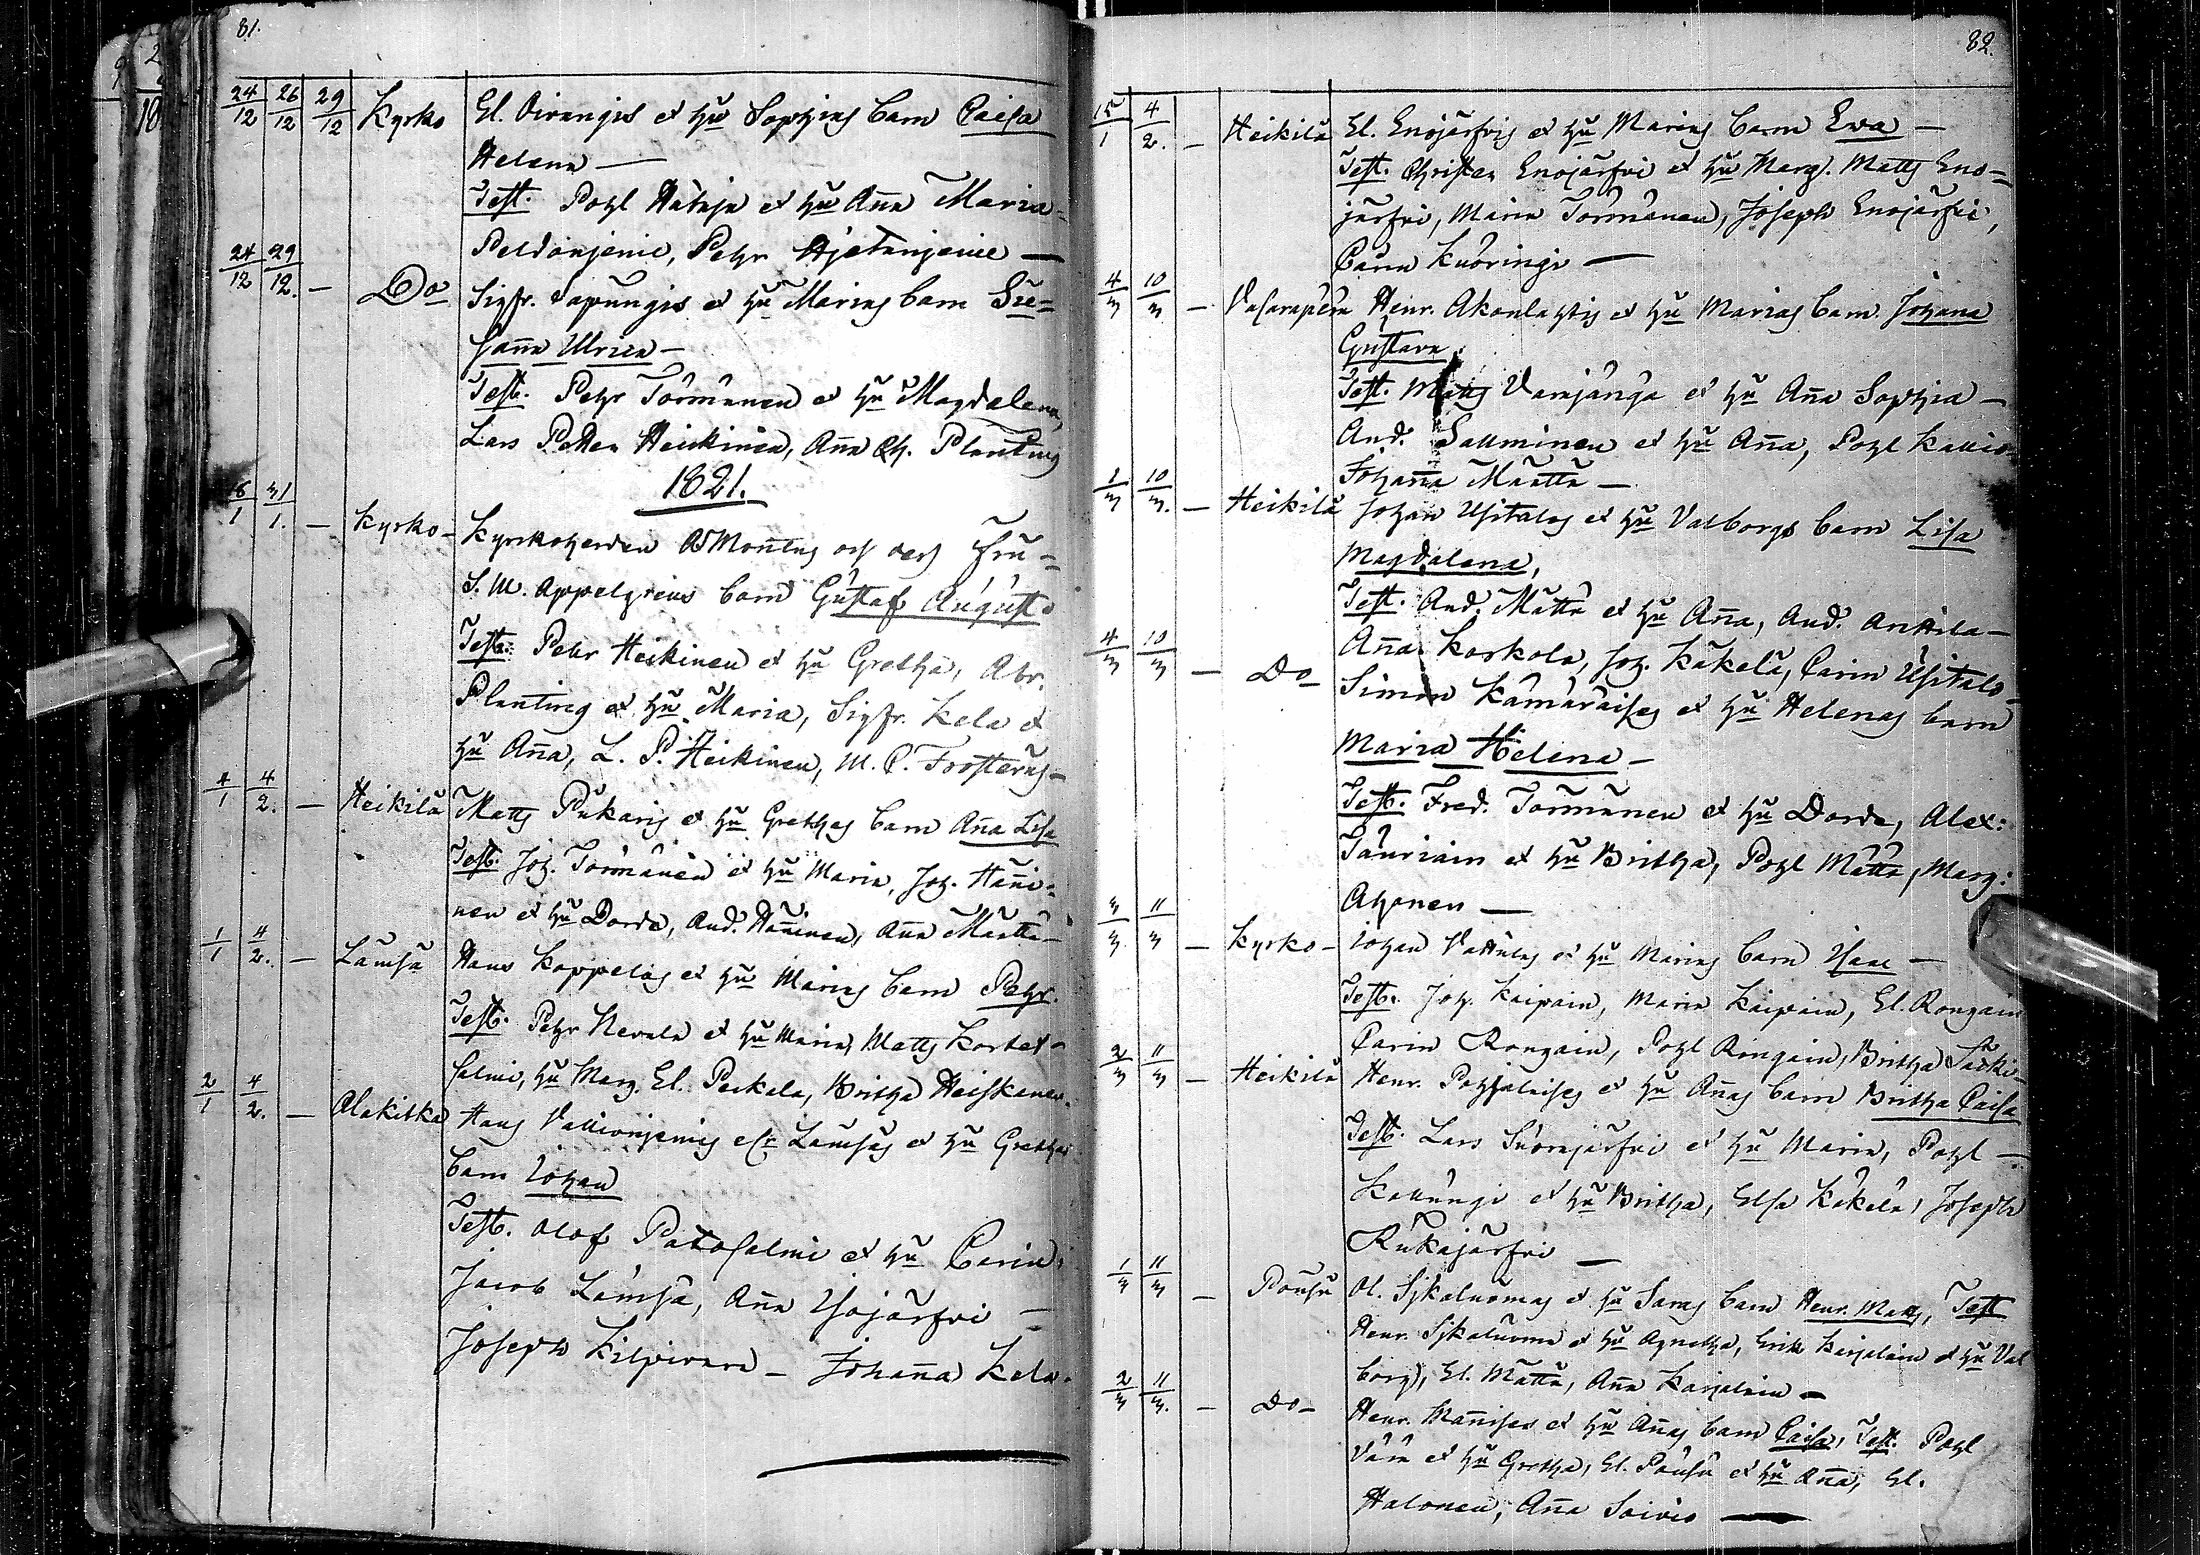 81.
24/12 26/12 29/12 Kyrko El. Oirangis et hu Sophias barn Caisa
Helena —
Test. Pohl Hataja et hu Aña Maria
Peldonjemie, Pehr Hjetanjemie —
24/12 29/12. — Do Sigfr. Vapungis et hu Marias barn Su=
sanna Ulrica —
Test. Pehr Törmänen et hu Magdalena,
Lars Petter Heickinen, Aña Ch. Planting
1821.
1 31/1. — Kyrko — Kyrkoherden Montins och dess Fru
S. M. Appelgrens barn Gustaf August
Test: Pehr Heikinen et hu Gretha, Abr.
Planting et hu Maria, Sigfr. Kela et
hu Aña, L. P. Heikinen, M. C. Frosterus —
4/1 4/2. — Heikilä Matts Pukaris et hu Grethas barn Aña Lisa
Test. Joh. Törmänen et hu Maria, Joh. Hañi=
nen et hu Dorde, And. Hañinen, Aña Määttä
1/1 4/2. — Lämsä Hans Koppelos et hu Marias barn Pehr.
Test. Pehr Nevala et hu Maria, Matts Kortet=
salmi, hu Marg. El. Perkola, Britha Heiskanen.
2/1 4/2. — Alakitka Hans Vallionjemis eller Lämsäs et hu Grethas
barn Johan
Test. Olof Patosalmi et hu Carin,
Jacob Lämsä, Aña Isojärfvi —
Joseph Kilpivara — Johaña Kela.
82.
15/1 4/2. — Heikilä El. Enojärfvis et hu Marias barn Eva —
Test. Christer Enojärfvi et hu Marg. Matts Eno=
järfvi, Maria Törmänen, Joseph Enojärfvi,
Carin Kuoringi —
4/3 10/3 — Vasaraperä Henr. Akonlahtis et hu Marias barn Johana
Gustava,
Test. Matts Vanjanga et hu Aña Sophia —
And. Sallminen et hu Aña, Pohl Kallio
Johaña Määttä —
1/3 10/3. — Heikilä Johan Usitalos et hu Valborgs barn Lisa
Magdalena,
Test. And. Määttä et hu Aña, And. Anttila —
Aña Korkola, Joh. Käkelä, Carin Usitalo
4/3 10/3 — Do — Simon Kämäräises et hu Helenas barn
Maria Helena —
Test. Fred. Törmänen et hu Dorde, Alex:
Tauriain et hu Britha, Pohl Määttä, Marg:
Ahonen —
3/3. 11/3 — Kyrko — Johan Vattulas et hu Marias barn Isaac —
Test. Joh. Kaipain, Maria Kaipain, El. Rongain
Carin Rongain, Pohl Rongain, Britha Särki
2/3 11/3 — Heikilä Henr. Pohjolaises et hu Añas barn Britha Caisa
Test. Lars Suonjärfvi et hu Maria, Pohl —
Kallungi et hu Britha, Elsa Käkelä, Joseph
Rukajärfvi —
1/3 11/3 — Pousu Ol. Sjkaluomas et hu Saras barn Henr. Matts, Test
Henr. Sjkaluoma et hu Agnetha, Erik Karjalain et hu Val
borg, El. Määttä, Aña Karjalain —
2/3 11/3. — Do — Henr. Mañises et hu Añas barn Caisa, Test. Pohl
Vänä et hu Gretha, El. Pousu et hu Aña, El.
Halonen, Aña Soivio —